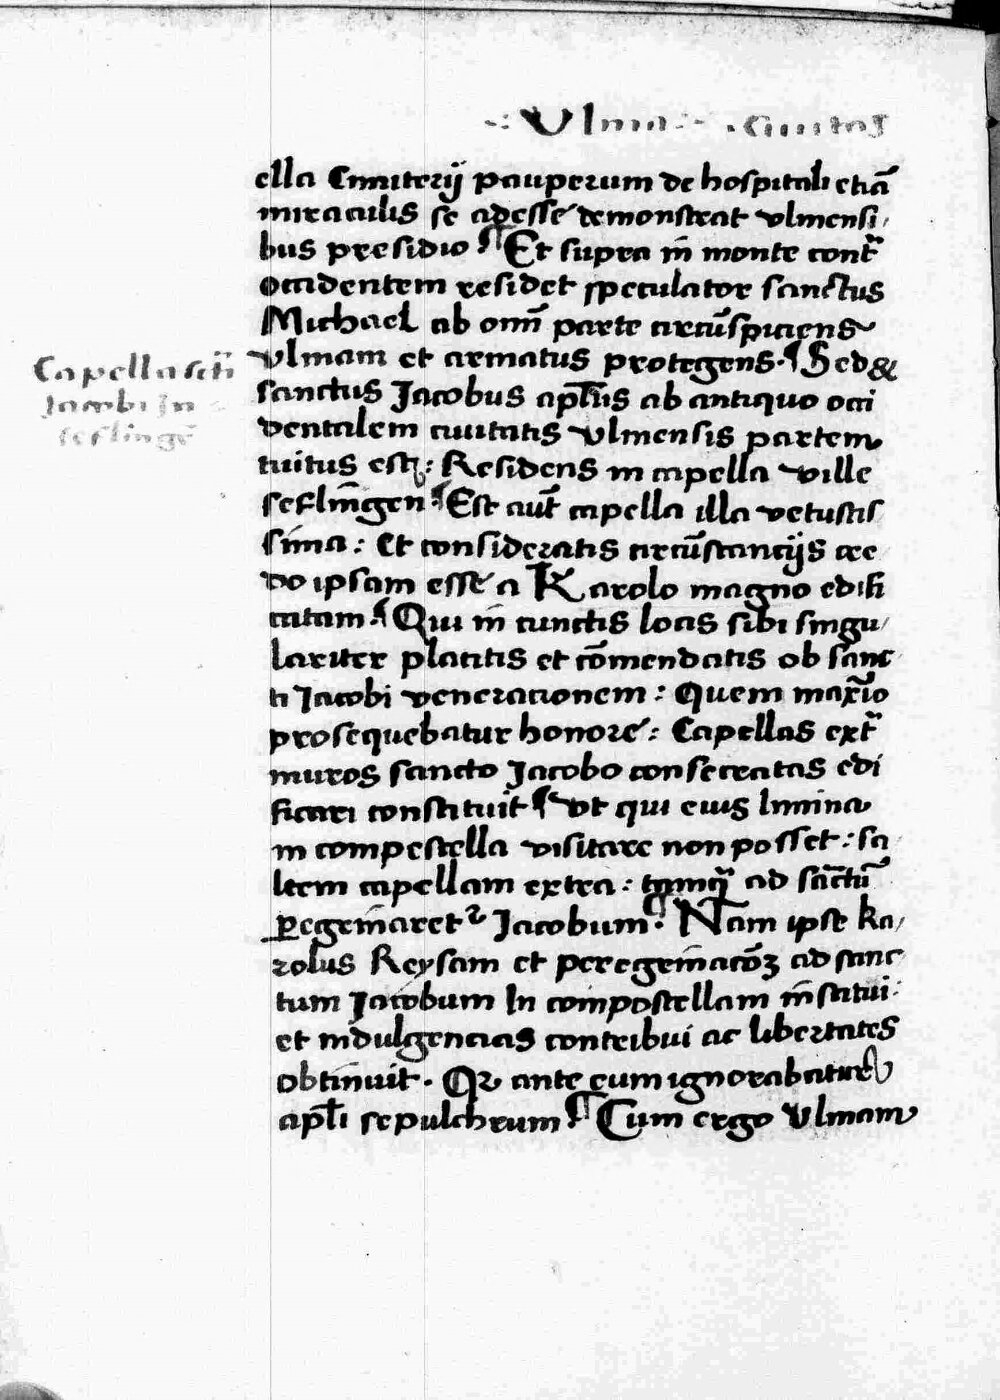 ·: Ulma :· · Ciuitas
ella Cimiterij pauperum de hospitali etiā
miraculis se adesse demonstrat vlmensi/
bus presidio ¶ Et supra in̄ monte contᷓ
occidentem residet speculator sanctus
Michael ab om̄i parte circū̄spiciens
vlmam et armatus protegens. ¶ Sed &
sanctus Jacobus apl̄us ab antiquo occi
dentalem ciuitatis vlmensis partem
tuitus est : Residens in capella ville
seflin̄gen ¶ Est aut̄ capella illa vetustis
sima : Et consideratis circū̄stancijs cre
do ipsam esse a Karolo magno edifi
catam ¶ Qui in̄ cunctis locis sibi singu/
lariter placitis et cōmendatis ob sanc
ti Jacobi veneracionem : Quem maxīo
prosequebatur honore : Capellas extᷓ
muros sancto Jacobo consecratas edi
ficari constituit ¶ vt qui eius limina
in compostella visitare non posset : sa
ltem capellam extra : tamqᷓ ad sāctū
ꝑegrin̄aret᷑ Jacobum ¶ Nam ipse ka/
rolus Reysam et peregrin̄acōꝫ ad sanc
tum Jacobum In compostellam in̄stitui:
et indulgencias contribui ac libertates
obtinuit. Qꝛ ante eum ignorabatur
apl̄i sepulchrum ¶ Cum ergo vlmam
Capella sctī
Jacobi In
seflingē